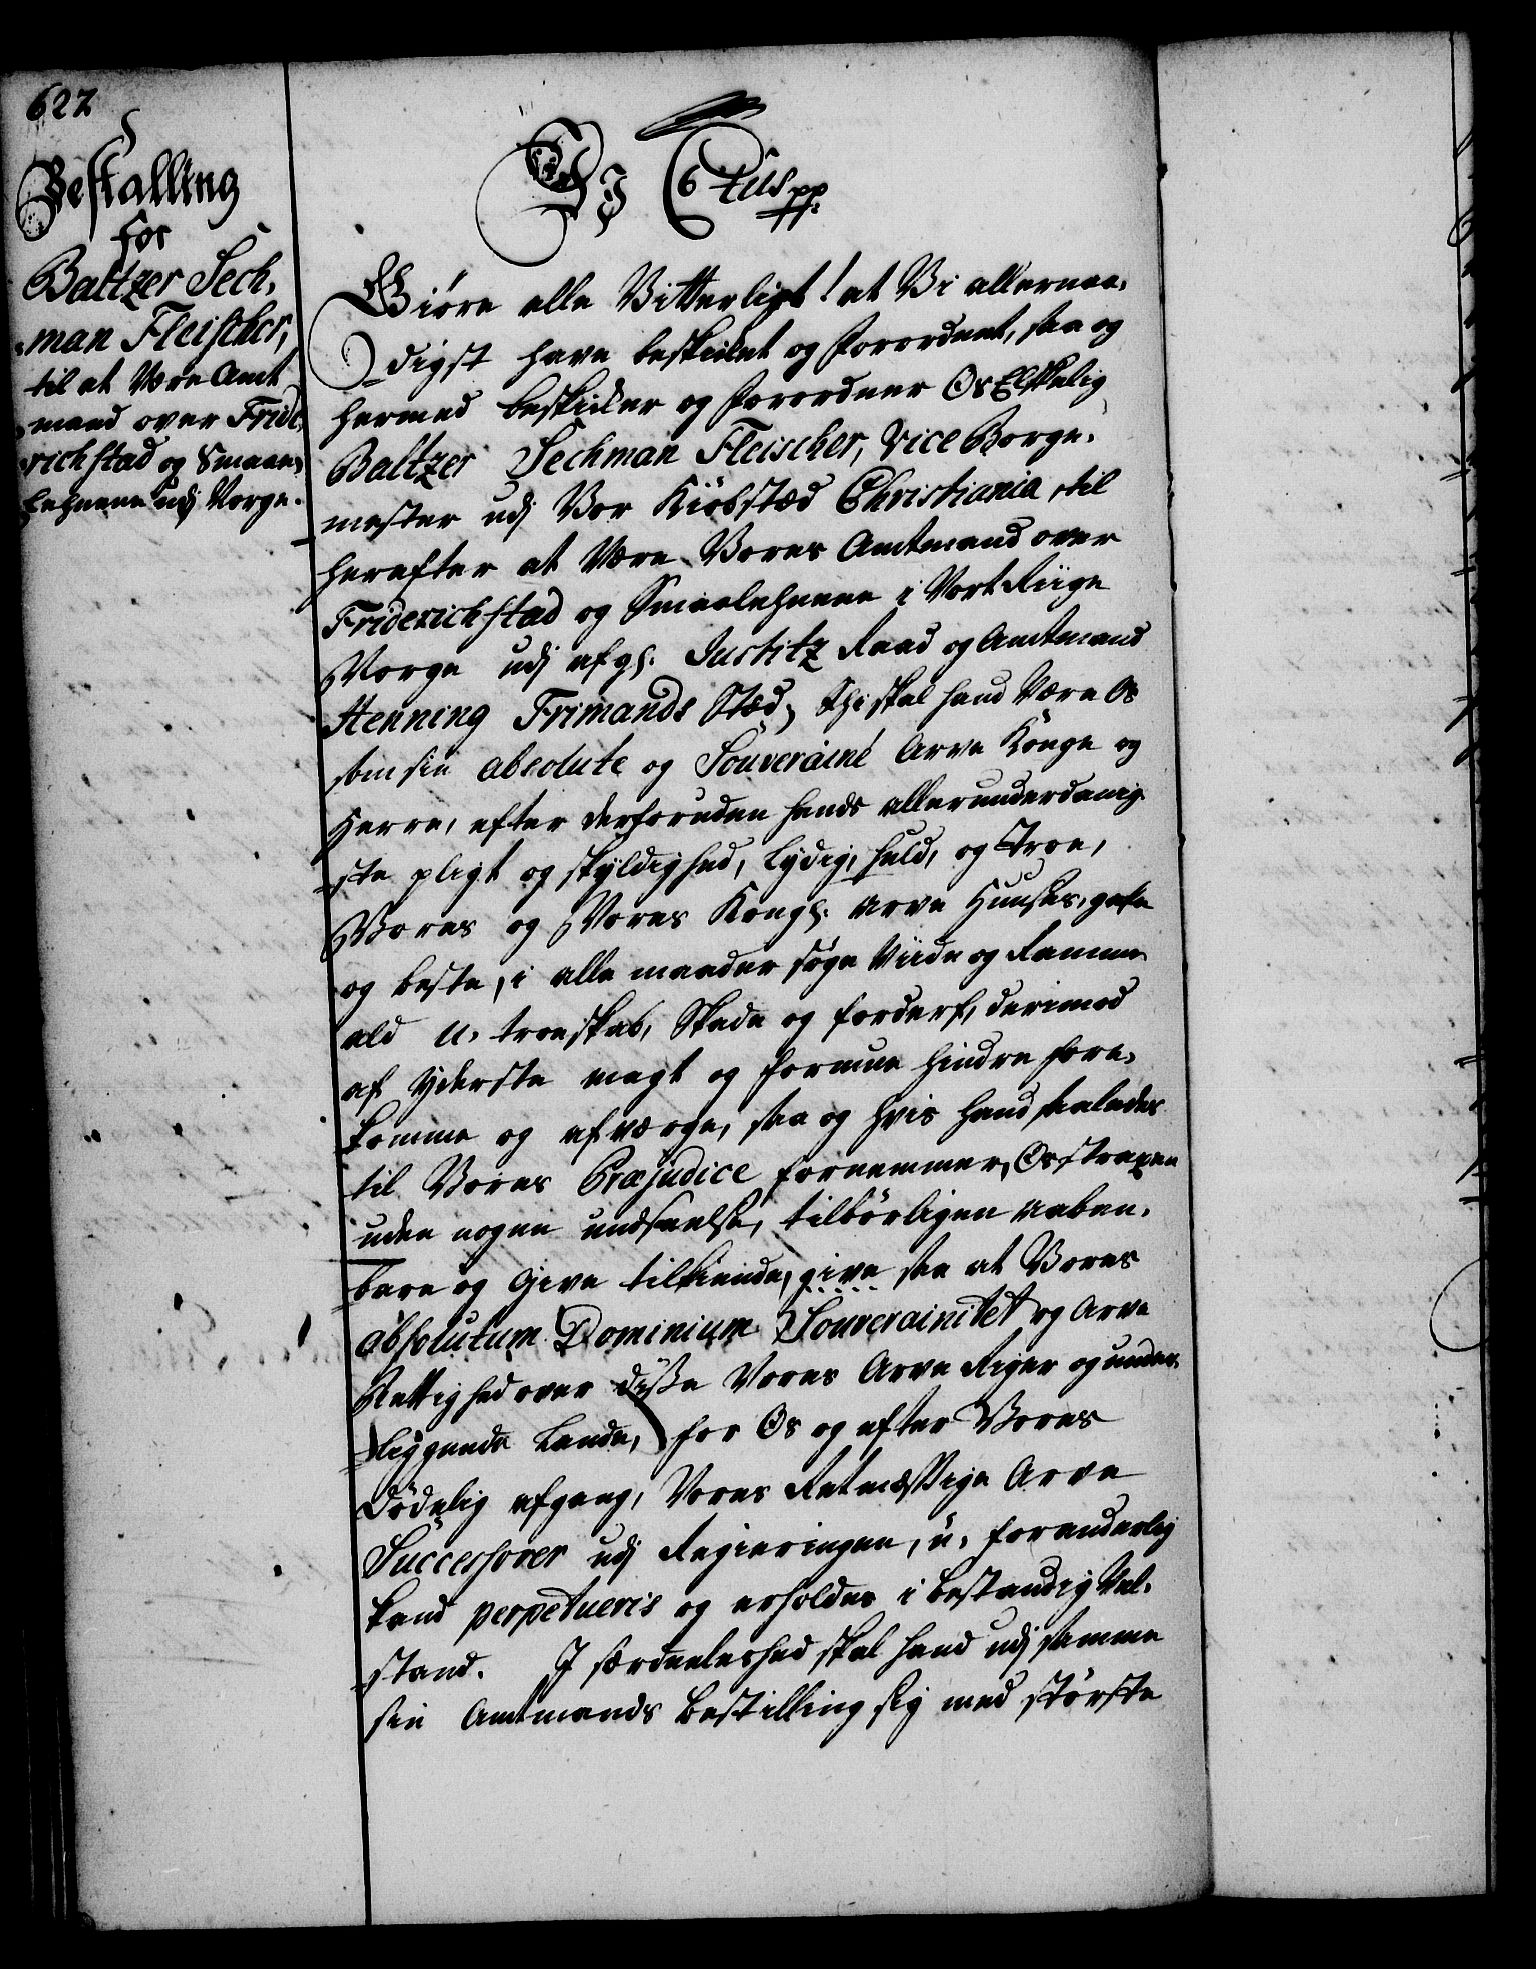 622
Bestalling
for
Baltzer Sech,
man Fleischer,
til at Være Amt
mand over Fride,
richstad og Smaae,
Lehnene udj Norge.
Vi C6tus pp
Giöre alle Vitterligt! at Vi allernaa,
digst have beskiidet og forordnet, saa og
hermed beskiider og forordner Os Elskelig
Baltzer Sechman Fleischer, Vice Borge,
mester udj Vor Kiöbstæd Christiania, til
herefter at Være Vores Amtmand over
Friderichstad og Smaalehnene i Vort Riige
Norge udj afgl. Justitz Raad og Amtmand
Henning Frimands Stæd, Thi skal hand Være Os
som sin absolute og Souveraine Arve Konge og
Herre, efter derforuden hands allerunderdanig
ste pligt og skyldighed, lydig, huld, og troe,
Vores og Vores Kongl. Arve Huuses, gafn
og beste, i alle maader söge Viide og Ramme
ald u, troeskab, Skade og forderf, derimod
af yderste magt og formue hindre fore,
komme og afværge, saa og hvis hand saaledes
til Vores Præjudice fornemmer, Os straxen
uden nogen undseelse, tilbörligen aaben,
bare og Give tilkiende, give saa at Vores
absolutum Dominium Souverainitet og Arve
Rettighed over disse Vores Arve Riger og under,
liggende Lande, for Os og efter Vores
Dödelig afgang, Vores Retmæssige Arve
Successorer udj Regieringen, u, foranderlig
kand perpetueris og erholdes i bestandig Vel,
stand. I særdeeleshed skal hand udj samme
sin Amtmands bestilling sig med störste